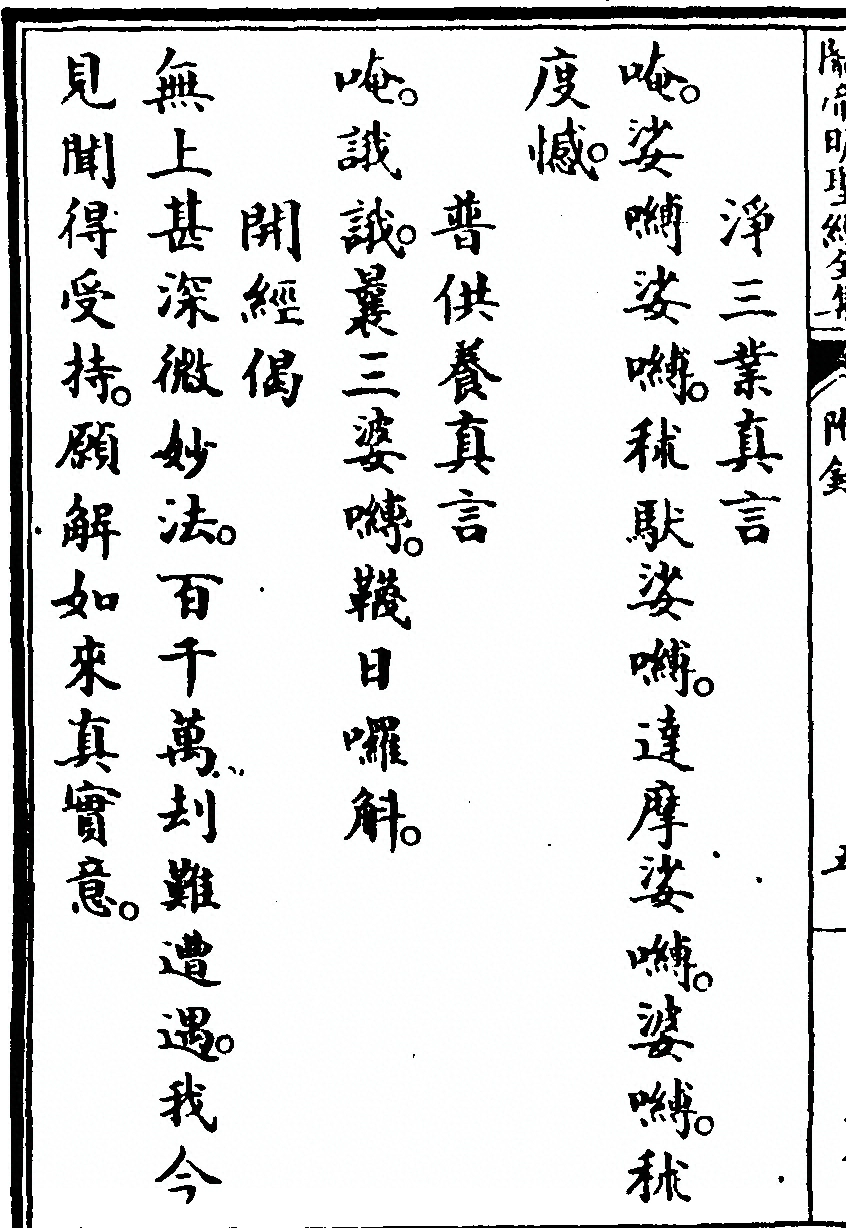 淨三業真言
唵。娑嚩娑嚩。秫馱娑嚩。達摩娑嚩。娑嚩。秫
度憾。
普供養真言
唵。誐誐。曩三婆嚩。韈日囉斛。
開經偈
無上甚深微妙法。百千萬刦難遭遇。我今
見聞得受持。願解如來真實意。